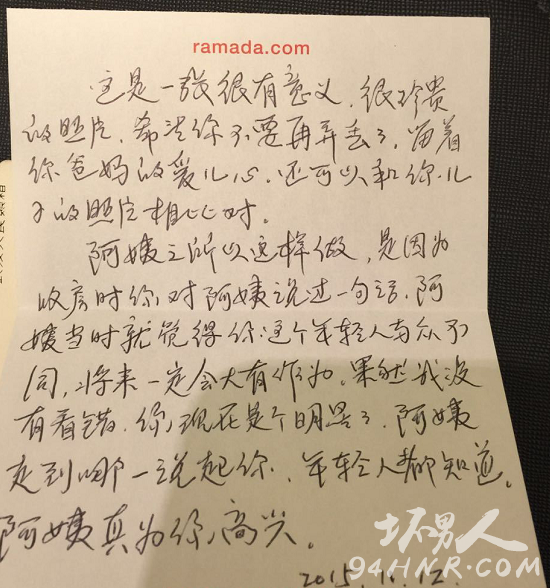 ramada.com
这是一张很有意义、很珍贵
的照片,希望你不要再弄丢了,留着
你爸妈的爱儿心,还可以和你儿
子的照片相比对。
阿姨之所以这样做,是因为
收房时你对阿姨说过一句话,阿
姨当时就觉得你这个年轻人与众不
同,将来一定会大有作为,果然我没
有看错,你现在是个明星了,阿姨
走到哪一说起你,年轻人都知道。
阿姨真为你高兴。
2015.
坏男人
94HNR.COM